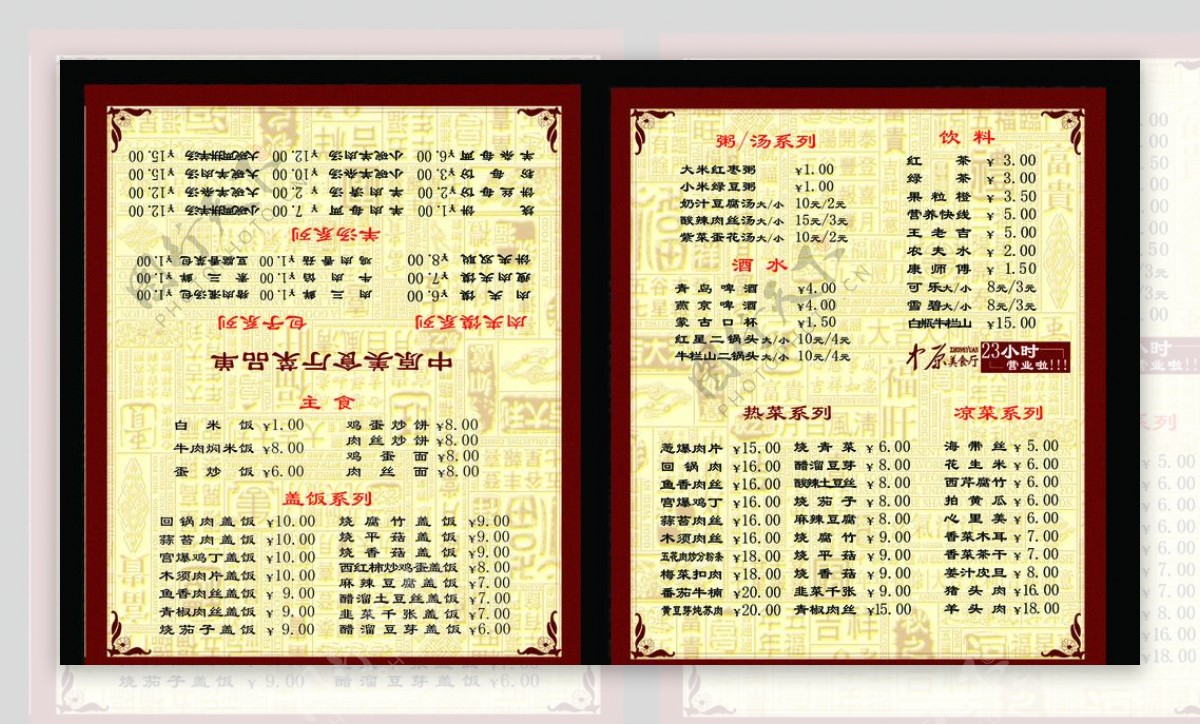 中原美食厅菜品单
肉夹馍系列 包子系列
肉夹馍 ¥6.00 肉三鲜 ¥1.00 猪肉灌汤包 ¥1.00
瘦肉夹馍 ¥7.00 牛肉馅 ¥1.00 素三鲜 ¥1.00
饼夹双瓤 ¥8.00 鸡肉香菇 ¥1.00 豆腐香菜包 ¥1.00
羊汤系列
烧饼 ¥1.00 羊肉每两 ¥7.00 小碗羊杂汤 ¥12.00
饼丝每份 ¥2.00 羊肉清汤 ¥2.00 大碗羊杂汤 ¥12.00
粉每份 ¥3.00 小碗羊杂汤 ¥10.00 大碗羊肉汤 ¥15.00
羊杂每两 ¥6.00 小碗羊肉汤 ¥12.00 ¥15.00
主食
白米饭 ¥1.00 鸡蛋炒饼 ¥8.00
肉丝炒饼 ¥8.00
牛肉焖米饭 ¥8.00 鸡蛋面 ¥8.00
蛋炒饭 ¥6.00 肉丝面 ¥8.00
盖饭系列
回锅肉盖饭 ¥10.00 烧腐竹盖饭 ¥9.00
蒜苔肉盖饭 ¥10.00 烧平菇盖饭 ¥9.00
宫爆鸡丁盖饭 ¥10.00 烧香菇盖饭 ¥9.00
木须肉片盖饭 ¥10.00 西红柿炒鸡蛋盖饭 ¥8.00
麻辣豆腐盖饭 ¥7.00
鱼香肉丝盖饭 ¥9.00 醋溜土豆丝盖饭 ¥7.00
青椒肉丝盖饭 ¥9.00 韭菜千张盖饭 ¥7.00
烧茄子盖饭 ¥9.00 醋溜豆芽盖饭 ¥6.00
粥/汤系列
大米红枣粥 ¥1.00
小米绿豆粥 ¥1.00
奶汁豆腐汤大/小 10元/2元
酸辣肉丝汤大/小 15元/3元
紫菜蛋花汤大/小 10元/2元
酒水
青岛啤酒 ¥4.00
燕京啤酒 ¥4.00
蒙古口杯 ¥1.50
红星二锅头大/小 10元/4元
牛栏山二锅头大/小 10元/4元
饮料
红茶 ¥3.00
绿茶 ¥3.00
果粒橙 ¥3.50
营养快线 ¥5.00
王老吉 ¥5.00
农夫水 ¥2.00
康师傅 ¥1.50
可乐大/小 8元/3元
雪碧大/小 8元/3元
白瓶牛栏山 ¥15.00
中原 ZHONGYUAN 美食厅 23小时
营业啦!!!
热菜系列
葱爆肉片 ¥15.00 烧青菜 ¥6.00
回锅肉 ¥16.00 醋溜豆芽 ¥8.00
鱼香肉丝 ¥16.00 酸辣土豆丝 ¥8.00
宫爆鸡丁 ¥16.00 烧茄子 ¥8.00
蒜苔肉丝 ¥16.00 麻辣豆腐 ¥8.00
木须肉丝 ¥16.00 烧腐竹 ¥9.00
五花肉炒分粉条 ¥18.00 烧平菇 ¥9.00
梅菜扣肉 ¥18.00 烧香菇 ¥9.00
番茄牛楠 ¥20.00 韭菜千张 ¥9.00
黄豆芽炖苏肉 ¥20.00 青椒肉丝 ¥15.00
凉菜系列
海带丝 ¥5.00
花生米 ¥6.00
西芹腐竹 ¥6.00
拍黄瓜 ¥6.00
心里美 ¥6.00
香菜木耳 ¥7.00
香菜茶干 ¥7.00
姜汁皮旦 ¥8.00
猪头肉 ¥16.00
羊头肉 ¥18.00